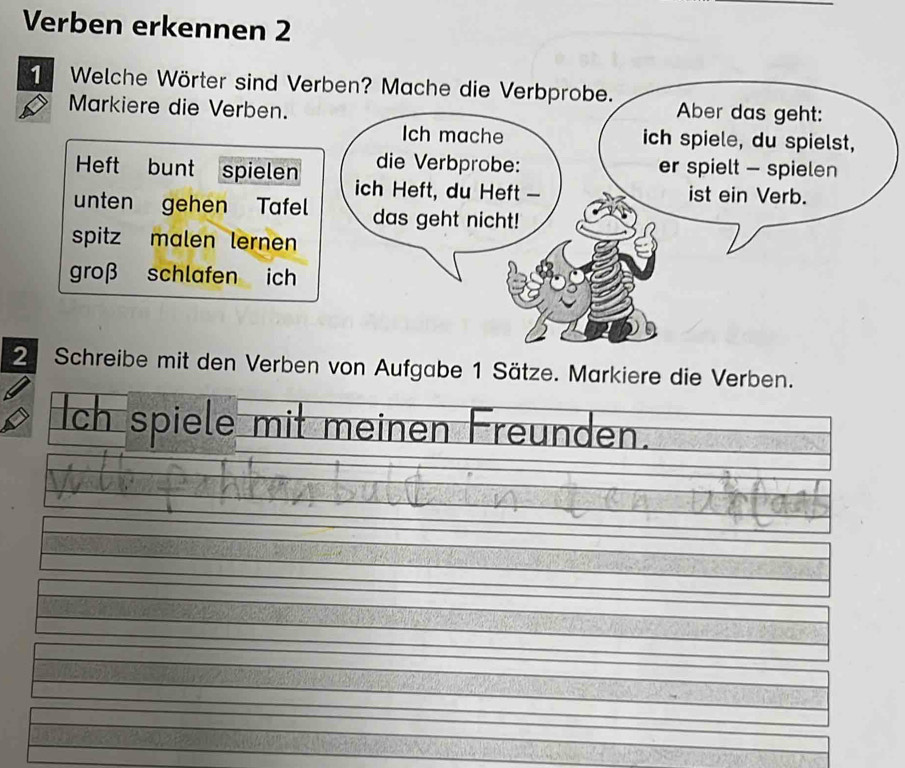 Verben erkennen 2
1 Welche Wörter sind Verben? Mache die Verbprobe.
Markiere die Verben.
Heft bunt spielen
unten gehen Tafel
spitz malen lernen
groß schlafen ich
Ich mache
die Verbprobe:
ich Heft, du Heft –
das geht nicht!
Aber das geht:
ich spiele, du spielst,
er spielt – spielen
ist ein Verb.
2 Schreibe mit den Verben von Aufgabe 1 Sätze. Markiere die Verben.
Ich spiele mit meinen Freunden.
bult in